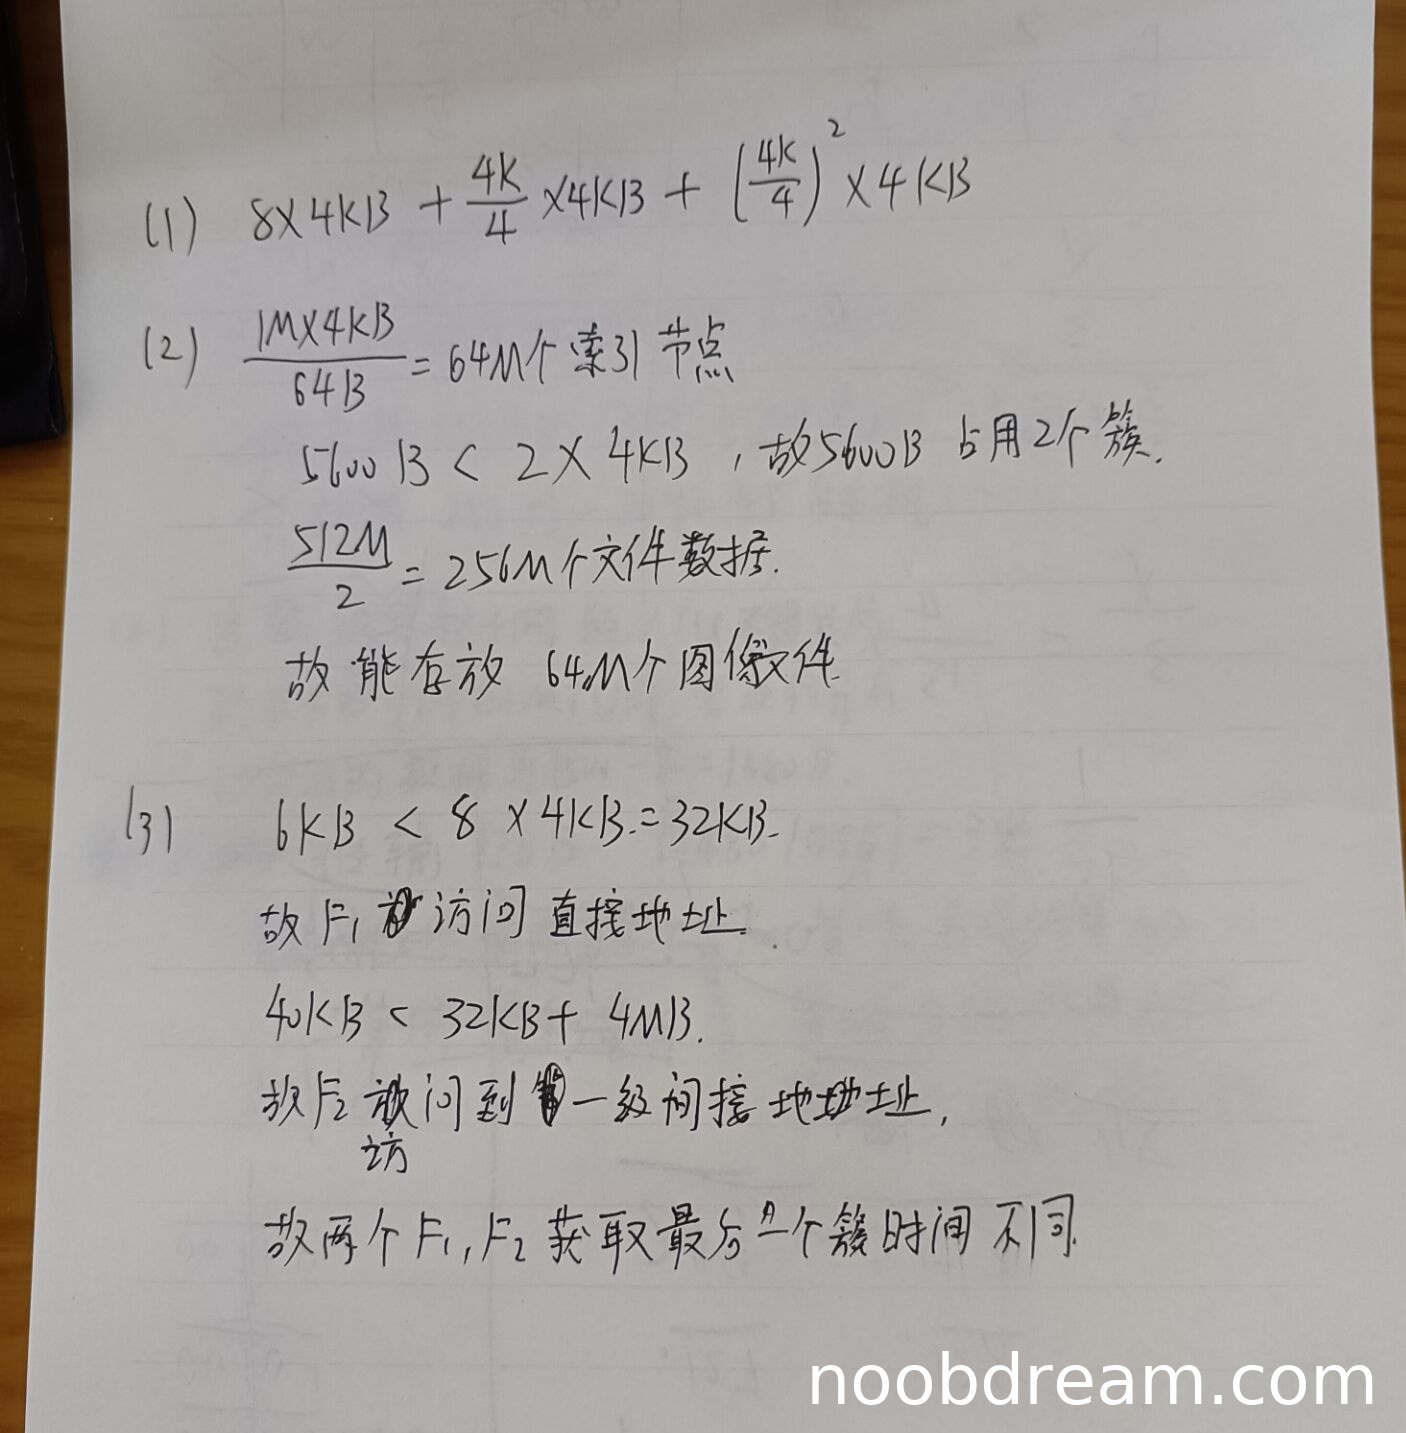 (1) 8×4KB + 4K/4 ×4KB + (4K/4)² ×4KB
(2) 1M×4KB/64B = 64M个索引节点
5600B < 2×4KB，故5600B占用2个簇.
512M/2 = 256M个文件数据.
故能存放 64M个图像文件.
(3) 6KB < 8×4KB.=32KB.
故F₁访问直接地址.
40KB < 32KB+ 4MB.
故F₂问到一级间接地地址,
访
故两个F₁,F₂获取最后一个簇时间不同.
noobdream.com